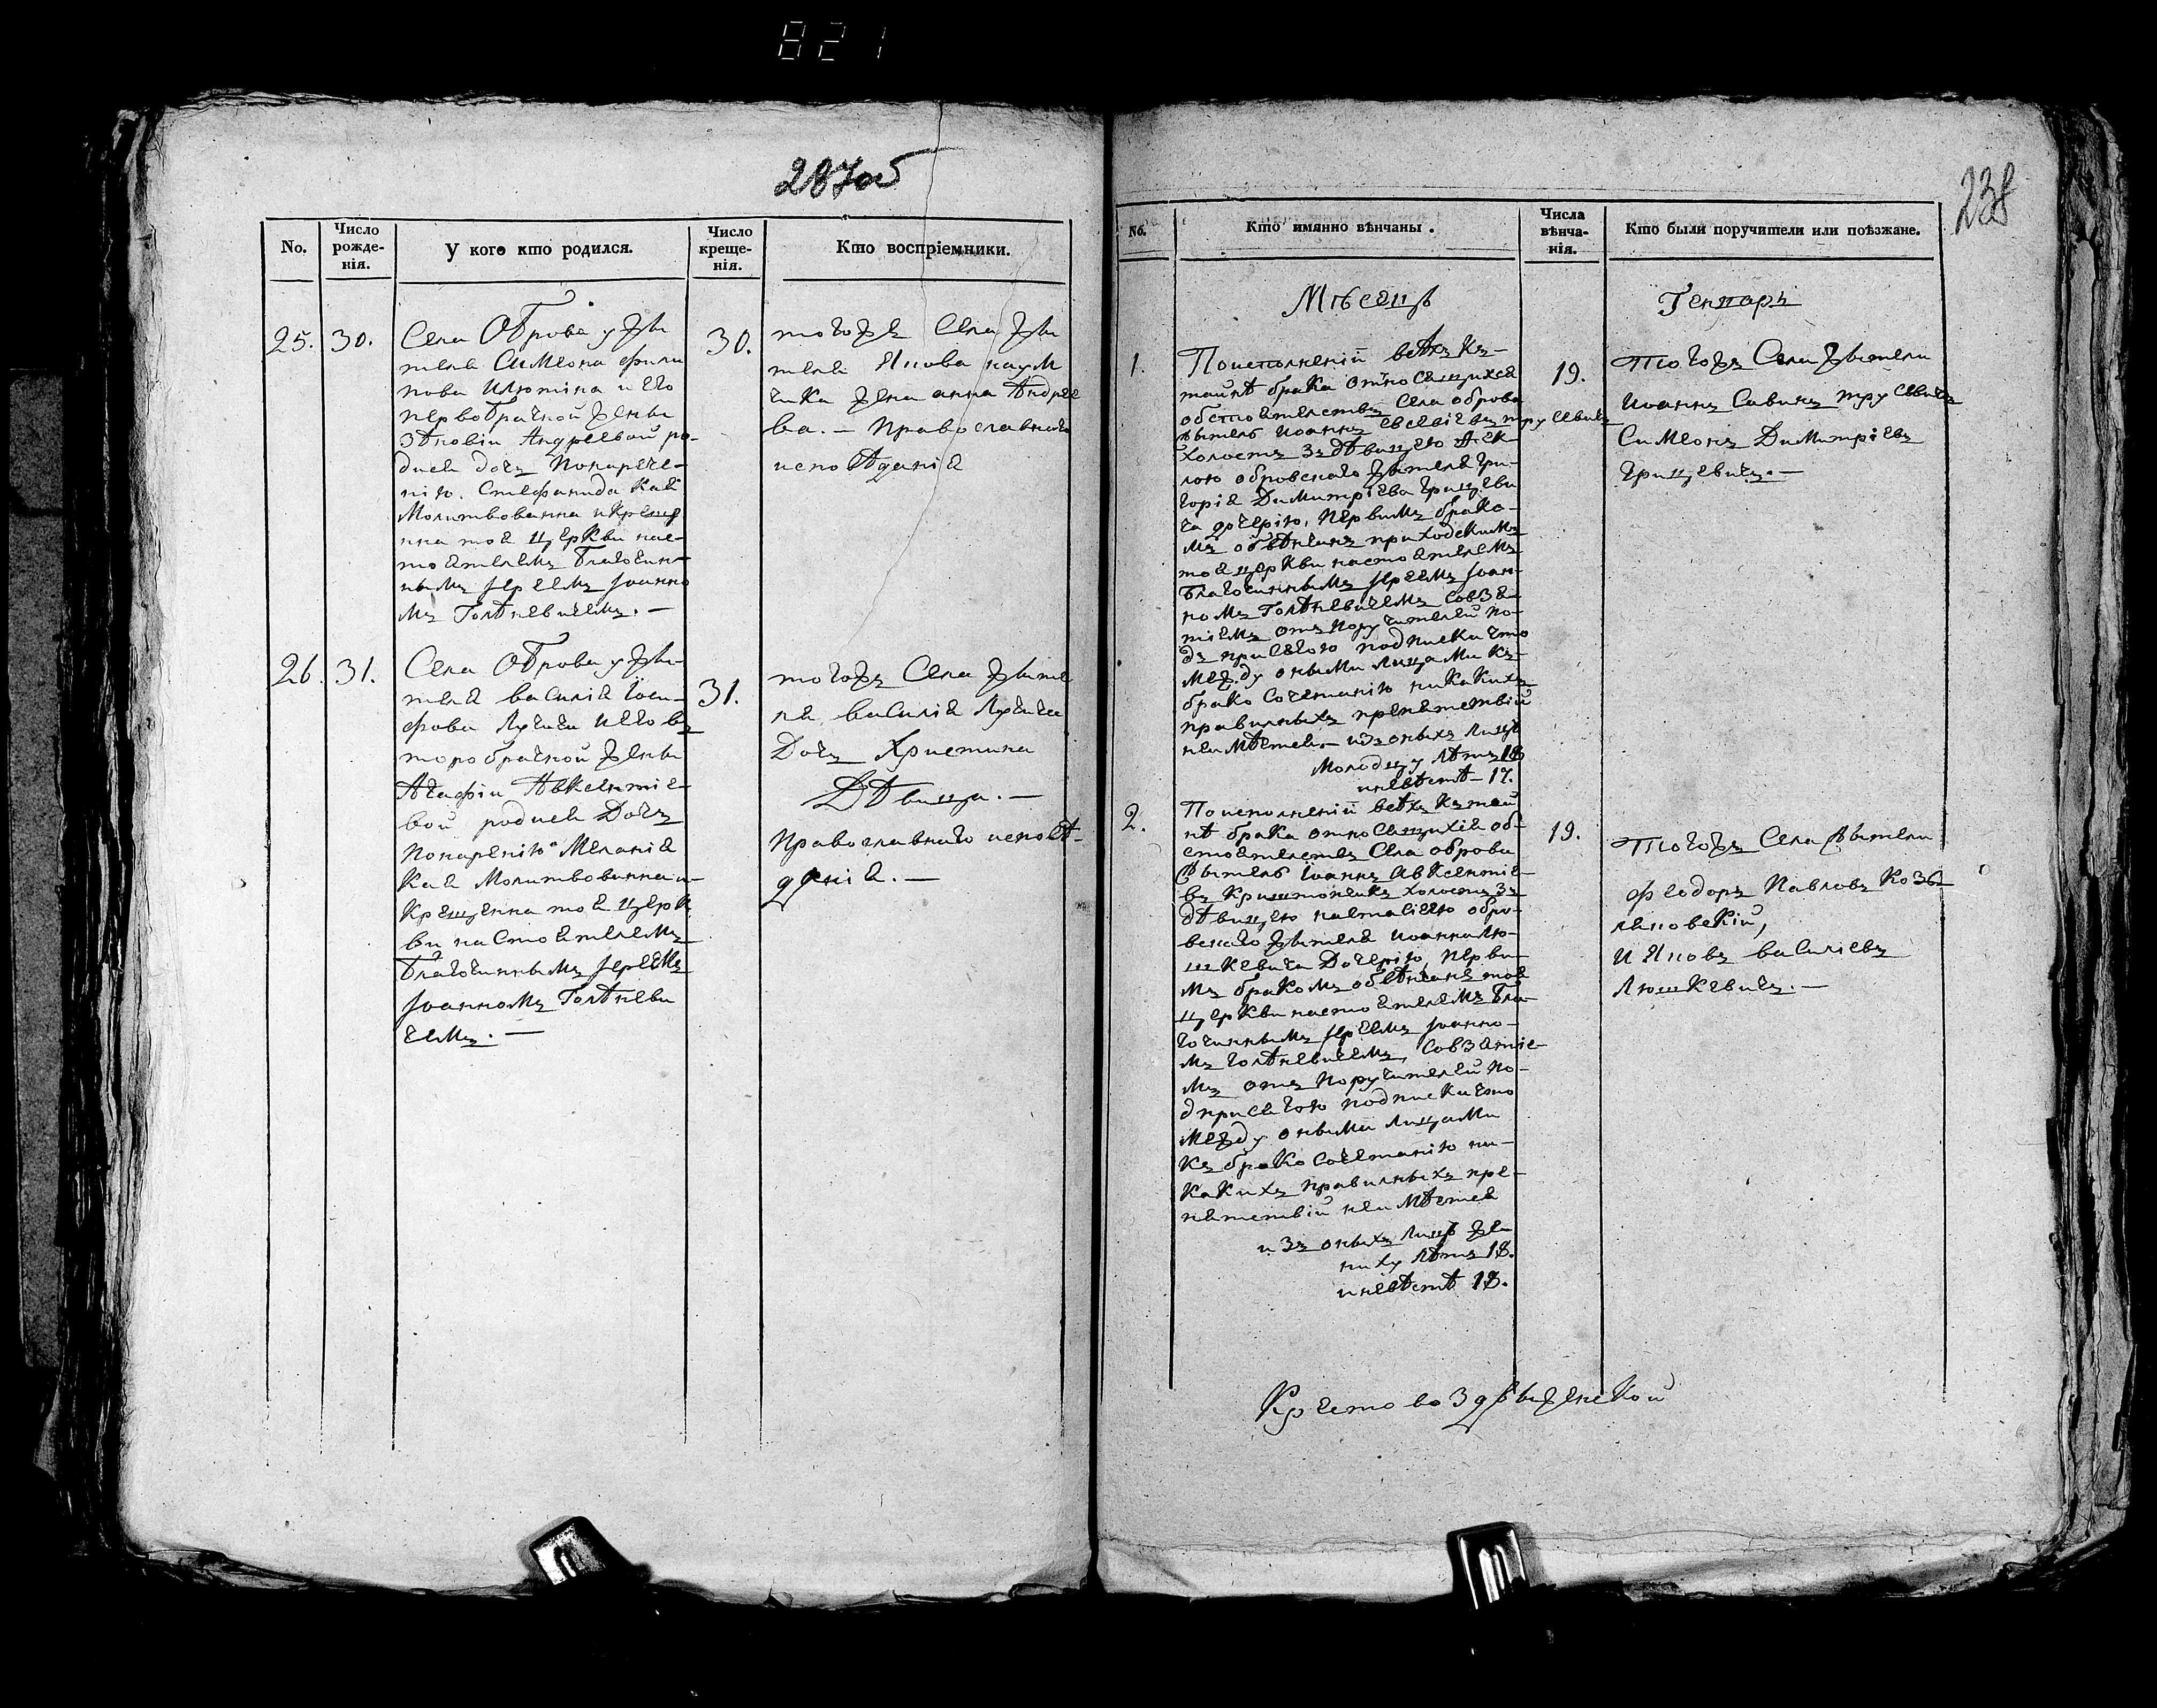 821
287об
238
No.
Число рожде-нія.
У кого кто родился.
Число креще-нія.
Кто воспріемники.
25.
30.
Села Оброва у жи
теля Симеона Фили
пова Илютина и его
первобрачной жены
Зѣновіи Андреевой ро-
дися дочъ понарече-
нію Стефанида кая
Молитвованна и креще
нна тоя церкви нас-
тоятелемъ Благочин-
нымъ Іереемъ Іоанно
мъ Голѣневичемъ. —
30.
тогоже Села жи
теля Якова наум
чика жена анна Андрее
ва. — Православнаго
исповѣданія
26.
31.
Села Оброва у жи-
теля василія Іоси-
фова Лучича и его въ
торобрачной жены
Агафіи Авксентіе-
вой родися Дочъ
понаренію Меланія
кая Молитвованна и-
крещенна тоя церк
ви настоятелемъ
Благочиннымъ Іереемъ
Іоанномъ Голѣневи
чемъ. —
31.
тогожъ Села жите
ля василія Лучича
Дочъ Христина
Дѣвица. —
Православнаго исповѣ-
данія. —
No.
Кто имянно вѣнчаны.
Числа вѣнча-нія.
Кто были поручители или поѣзжане.
Мѣсяцъ
Генварь
1.
Поисполненіи всѣхъ къ-
тайнѣ брака относящихся
обстоятельствъ Села оброва
жытель Иоаннъ евсевіевъ трусевичъ
холостъ Зъ дѣвицею Ѳек-
лою обровскаго жытеля Гри-
горія Димитріева Грицеви
ча дочерію, первымъ брако-
мъ обвѣнчанъ приходскимъ
тоя церкви настоятелемъ
Благочиннымъ Іереемъ Іоан-
номъ Голѣневичемъ Совзя-
тіемъ отъ поручителей по-
дъ присягою подписки что
между оными лицами къ-
брако Сочетанію никакихъ
правильныхъ препятствій
неимѣется — изъ оныхъ лицъ
Молодцу лѣтъ 18
иневѣстѣ — 17.
19.
Тогожъ Села жытели
Иоаннъ Савинъ трусевичъ
Симеонъ Димитріевъ
Грицевичъ. —
2.
Поисполненіи всѣхъ къ тай
нѣ брака относящихся об-
стоятельствъ Села оброва
жытель Іоаннъ Авксентіе-
въ Криштончикъ холостъ Зъ
дѣвицею настасіею обро-
вскаго жытеля Иоанна лю-
шкевича Дочерію, первы-
мъ бракомъ обвѣнчанъ тоя
церкви настоятелемъ Бла-
гочиннымъ Іереемъ Іоанно-
мъ Голѣневичемъ Совзятіе-
мъ отъ поручителей по-
дприсягою подписки что
между оными лицами
къ брако Сочетанію ни-
какихъ правильныхъ пре-
пятствій неимѣется
изъ оныхъ лицъ же-
ниху лѣтъ 18.
иневѣстѣ 18.
19.
Тогожъ Села жытели
Феодоръ Павловъ Козе-
ляновскій,
и Яковъ василіевъ
Люшкевичъ. —
Крестовоздвиженской